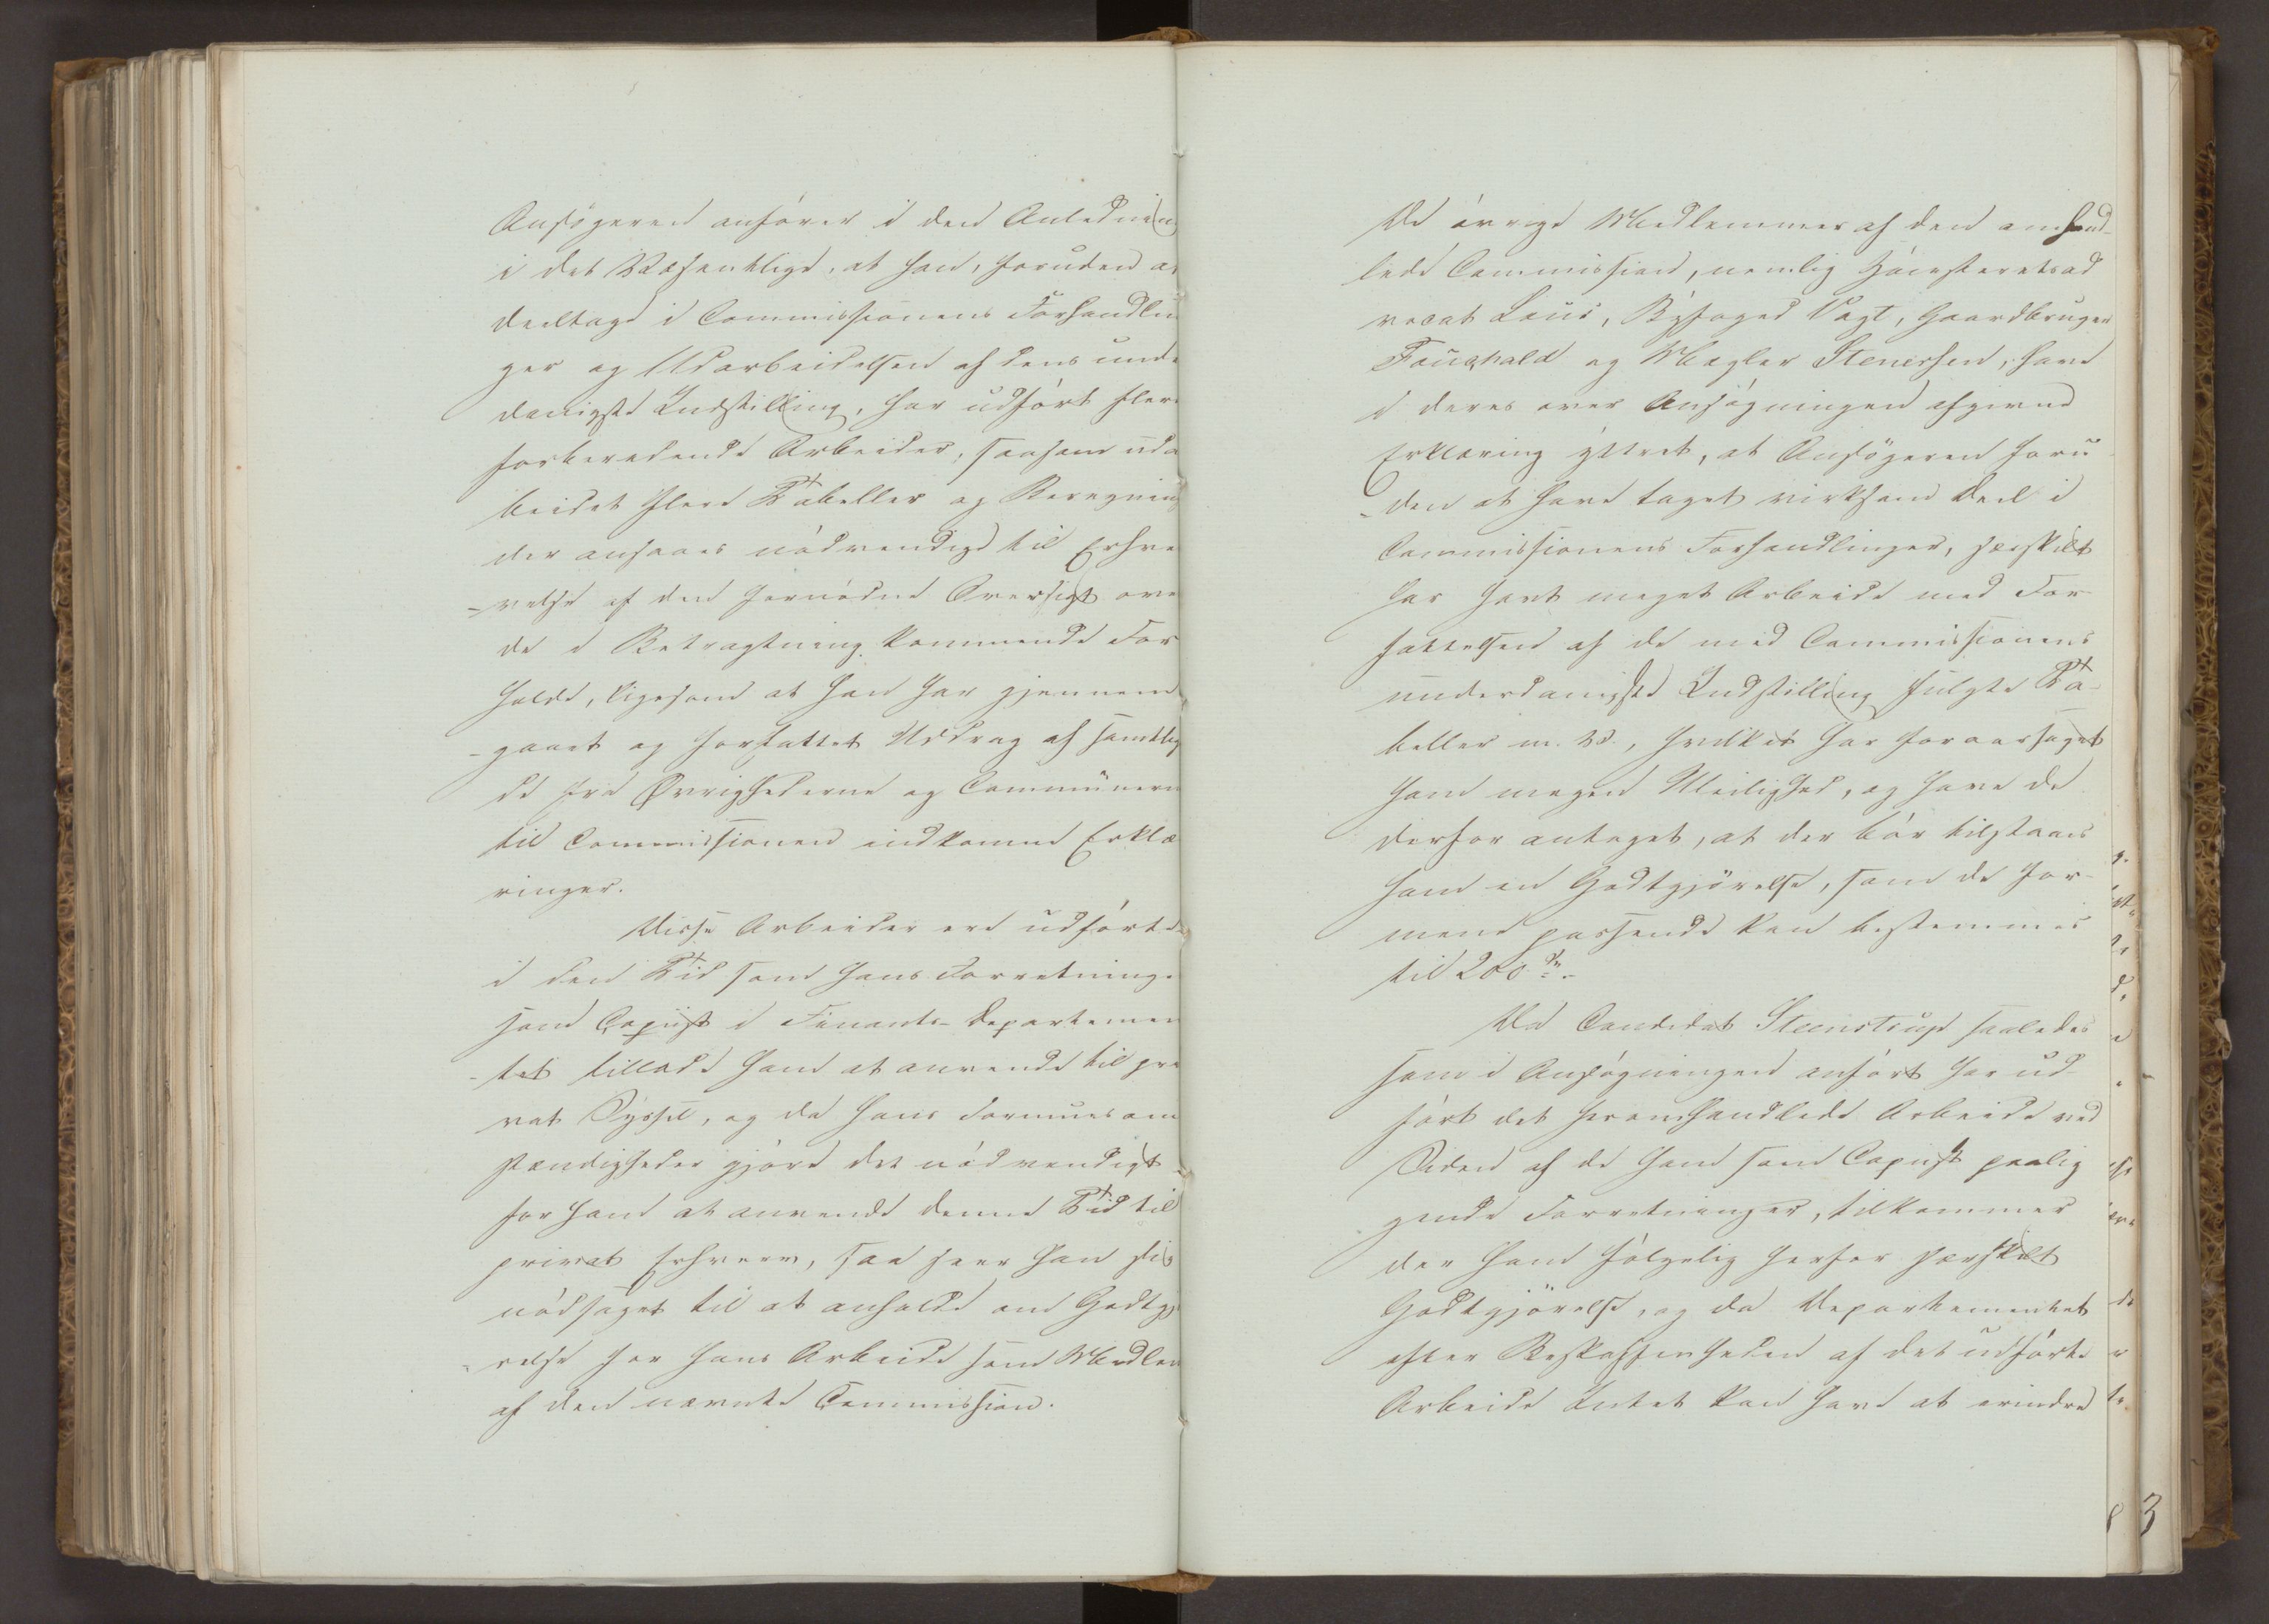 Ansøgeren anfører i den Anlednin
i det Væsentlige, at han, foruden at
deeltage i Commissionens Forhandlin
ger og Udarbeidelsen af dens unde
danigste Indstilling, har udført flere
forberedende Arbeider, saasom uda
beidet flere Tabeller og Beregning
der ansaaes nødvendige til Erhve
-velse af den fornødne Oversigt ove
de i Betragtning kommende For
holde, ligesom at han har gjennem
-gaaet og forfattet Uddrag af samtlig
de fra Øvrighederne og Communern
til Commissionen indkomne Erklæ
ringer.
Disse Arbeider ere udførte
i den Tid som hans Forretninge
som Copiist i Finants-Departemen
-tet tillode ham at anvende til pri
vat Syssel, og da hans Formuesom
stændigheder gjøre det nødvendigt
for ham at anvende denne Tid til
privat Erhverv, saa seer han sig
nødsaget til at anholde om Godtgj
-relse for hans Arbeide som Medlem
af den nævnte Commission.
De øvrige Medlemmer af den omhand-
lede Commission, nemlig Høiesteretsad
vocat Lous, Byfoged Vogt, Gaardbruger
Foughald og Mægler Stenersen, have
i deres over Ansøgningen afgivne
Erklæring yttret, at Ansøgeren foru
-den at have taget virksom Deel i
Commissionens Forhandlinger, særskilt
har havt meget Arbeide med For-
fattelsen af de med Commissionens
underdanigste Indstilling fulgte Ta-
beller m. V., hvilket har foraarsaget
ham megen Uleilighed, og have de
derfor antaget, at der bør tilstaaes
ham en Godtgjørelse, som de for-
mene passende kan bestemmes
til 200 Spd.
Da Candidat Steenstrup saaledes
som i Ansøgningen anført har ud-
ført det heromhandlede Arbeide ved
Siden af de ham som Copiist paalig
gende Forretninger, tilkommer
der ham følgelig herfor særskilt
Godtgjørelse, og da Departementet
efter Beskaffenheden af det udførte
Arbeide Intet kan have at erindre
3